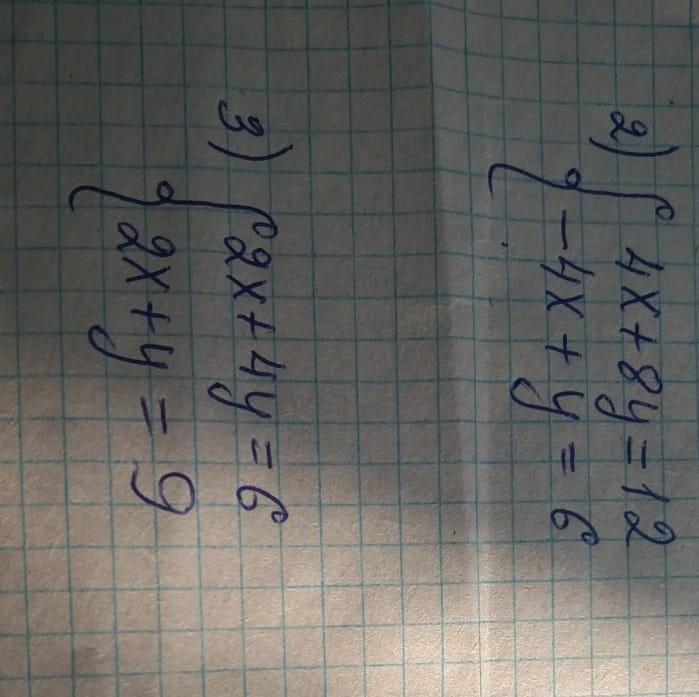 2) { 4x+8y=12
-4x+y=6
3) { 2x+4y=6
2x+y=9